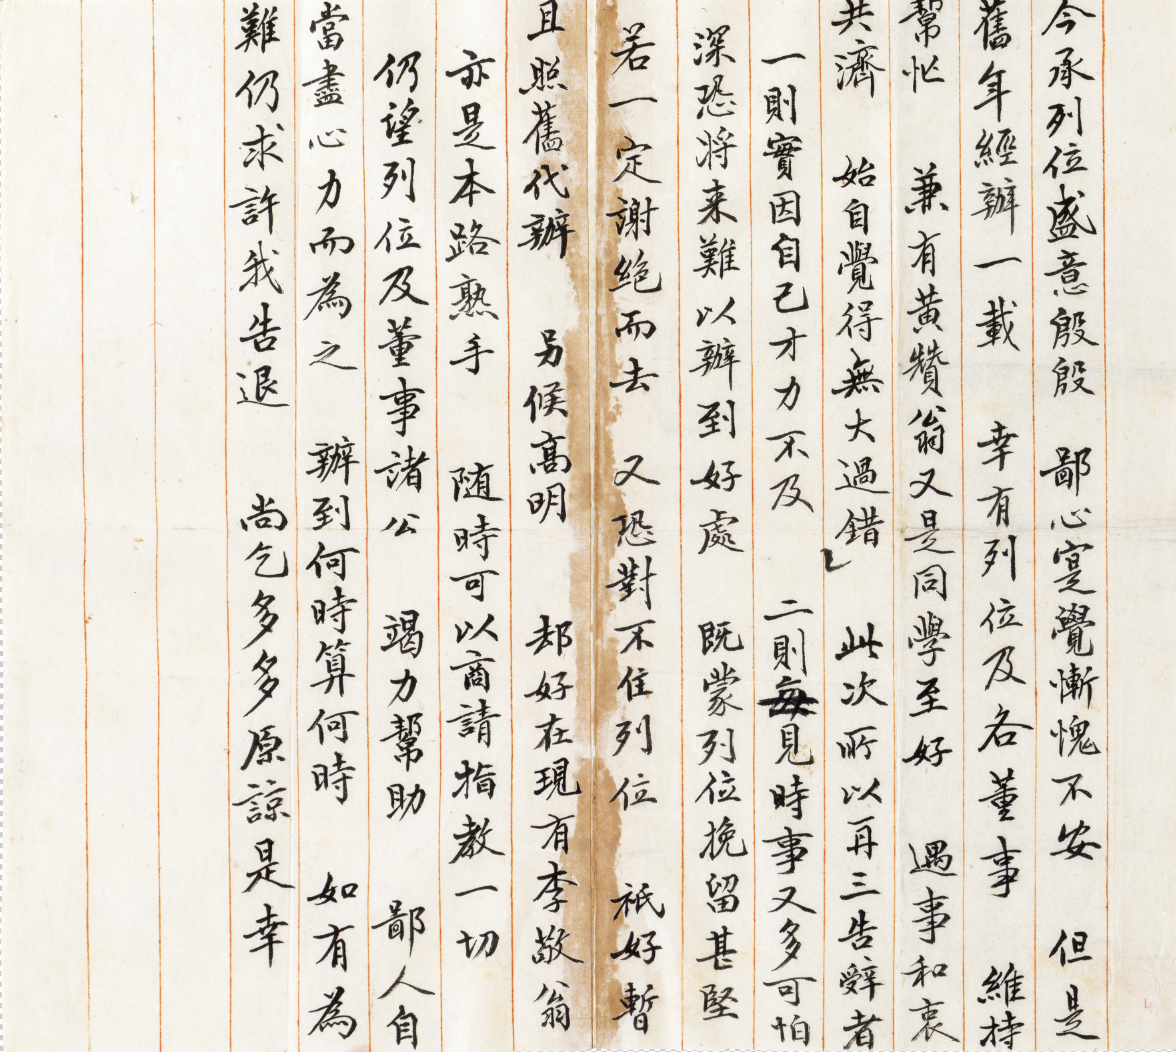 今承列位盛意殷殷 鄙心寔覺慚愧不安 但是
舊年經辦一載 幸有列位及各董事 維持
幫忙 兼有黃贊翁又是同學至好 遇事和衷
共濟 始自覺得無大過錯 此次所以再三告辭者
一則實因自己才力不及 二則見時事又多可怕
深恐将来難以辦到好處 既蒙列位挽留甚堅
若一定謝絕而去 又恐對不住列位 祇好暫
且照舊代辦 另候高明 却好在現有李敬翁
亦是本路熟手 随時可以商請指教一切
仍望列位及董事諸公 竭力幫助 鄙人自
當盡心力而為之 辦到何時算何時 如有為
難仍求許我告退 尚乞多多原諒是幸